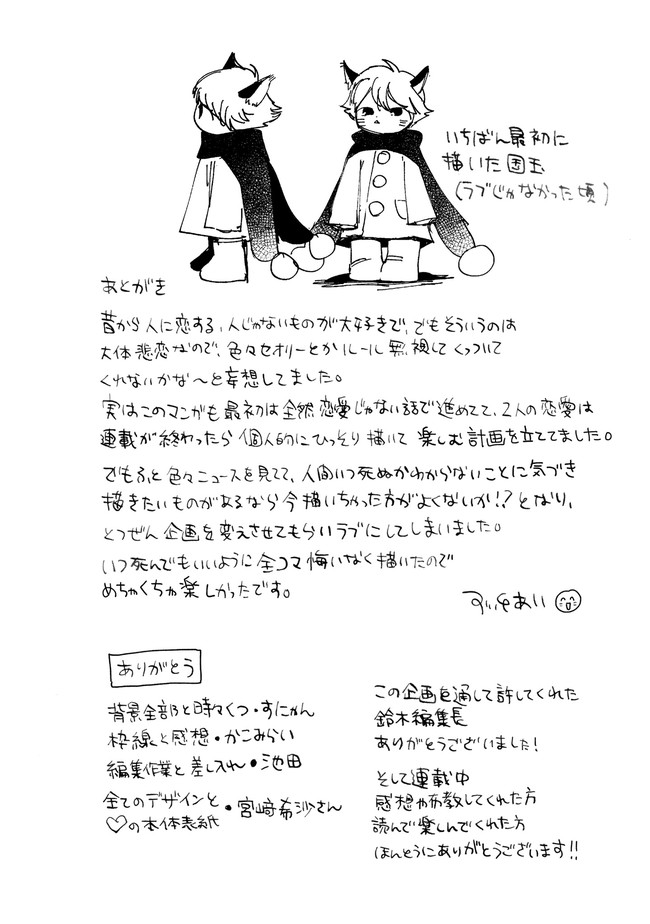 いちばん最初に
描いた国玉
(ラブじゃなかった頃)
あとがき
昔から人に恋する、人じゃないものが大好きで、でもそういうのは
大体悲恋なので、色々セオリーとかルール無視してくっついて
くれないかな〜と妄想してました。
実はこのマンガも最初は全然恋愛じゃない話で進めてて、2人の恋愛は
連載が終わったら個人的にひっそり描いて楽しむ計画を立ててました。
でもふと色々ニュースを見てて、人間いつ死ぬかわからないことに気づき
描きたいものがあるなら今描いちゃった方がよくないか!?となり、
とつぜん企画を変えさせてもらいラブにしてしまいました。
いつ死んでもいいように全コマ悔いなく描いたので
めちゃくちゃ楽しかったです。
ありがとう
背景全部と時々くつ・すにゃん
枠線と感想・かこみらい
編集作業と差し入れ・池田
全てのデザインと
♡の本体表紙・宮﨑希沙さん
この企画を通して許してくれた
鈴木編集長
ありがとうございました!
そして連載中
感想や布教してくれた方
読んで楽しんでくれた方
ほんとうにありがとうございます!!